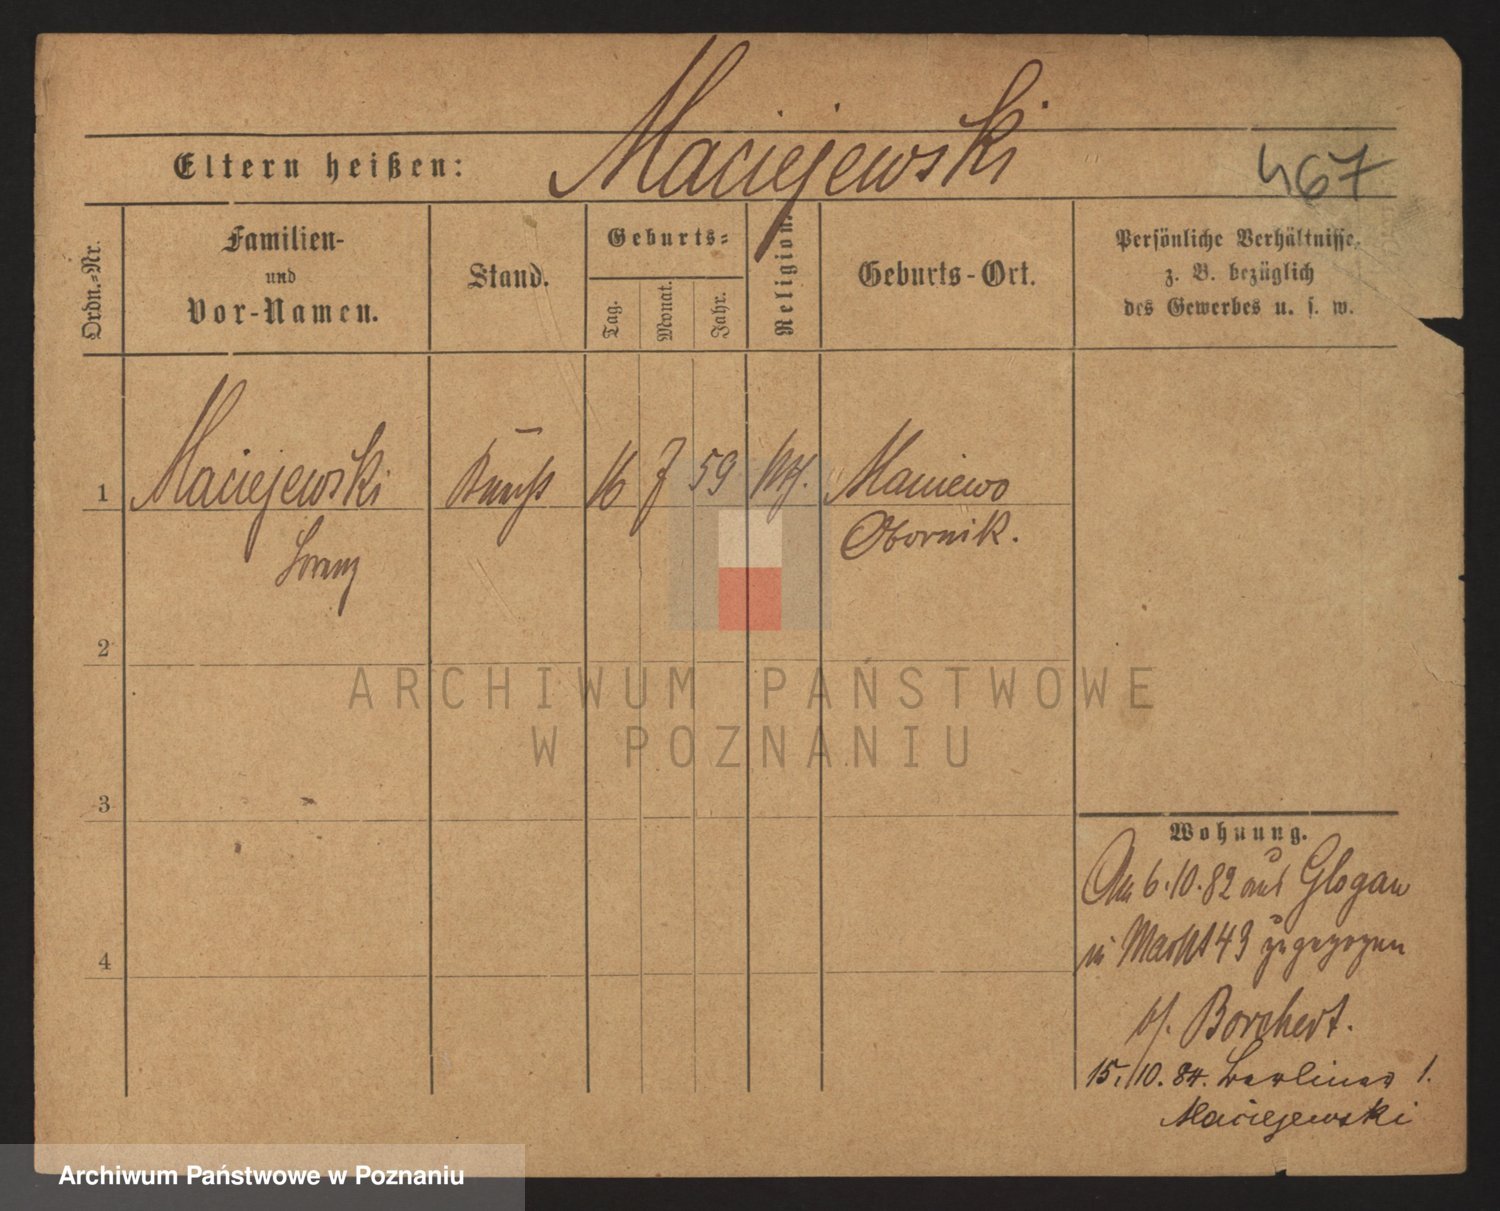 Maciejewski
Eltern heißen:
467
Ordn.-Nr.
Familien-
und
Vor-Namen.
Stand.
Geburts-
Tag.
Monat.
Jahr.
Religion.
Geburts-Ort.
Persönliche Verhältnisse,
z. B. bezüglich
des Gewerbes u. s. w.
1
Maciejewski
16
7
59
Maniewo
Lorenz
Obornik.
2
ARCHIWUM PAŃSTWOWE
W POZNANIU
3
Wohnung.
Am 6.10.82 aus Glogau
in Markt 49 zugezogen
4
bei Borchert.
15.10.84. Berliner 1.
Maciejewski
Archiwum Państwowe w Poznaniu